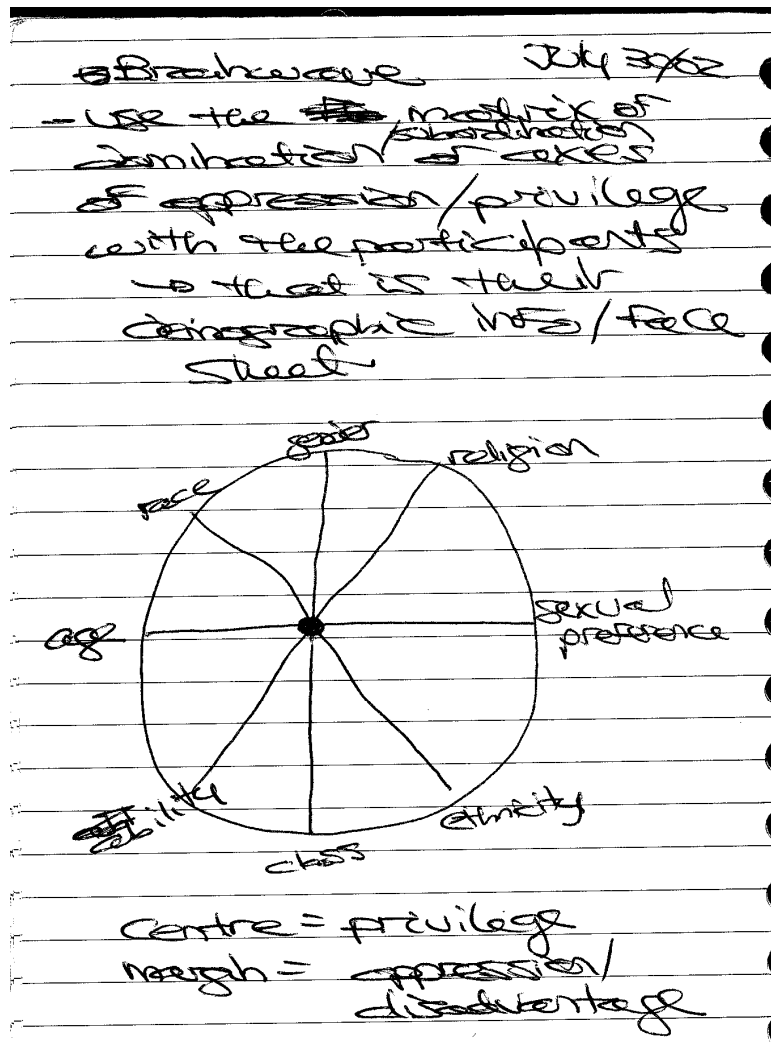 Brainwave July 30/02
- use the matrix of
subordination
domination/ of axes
of oppression/privilege
with the participants
→ that is their
demographic info/face
sheet
gender
religion
race
sexual
age
preference
ability
ethnicity
class
Centre = privilege
margin = oppression/
disadvantage